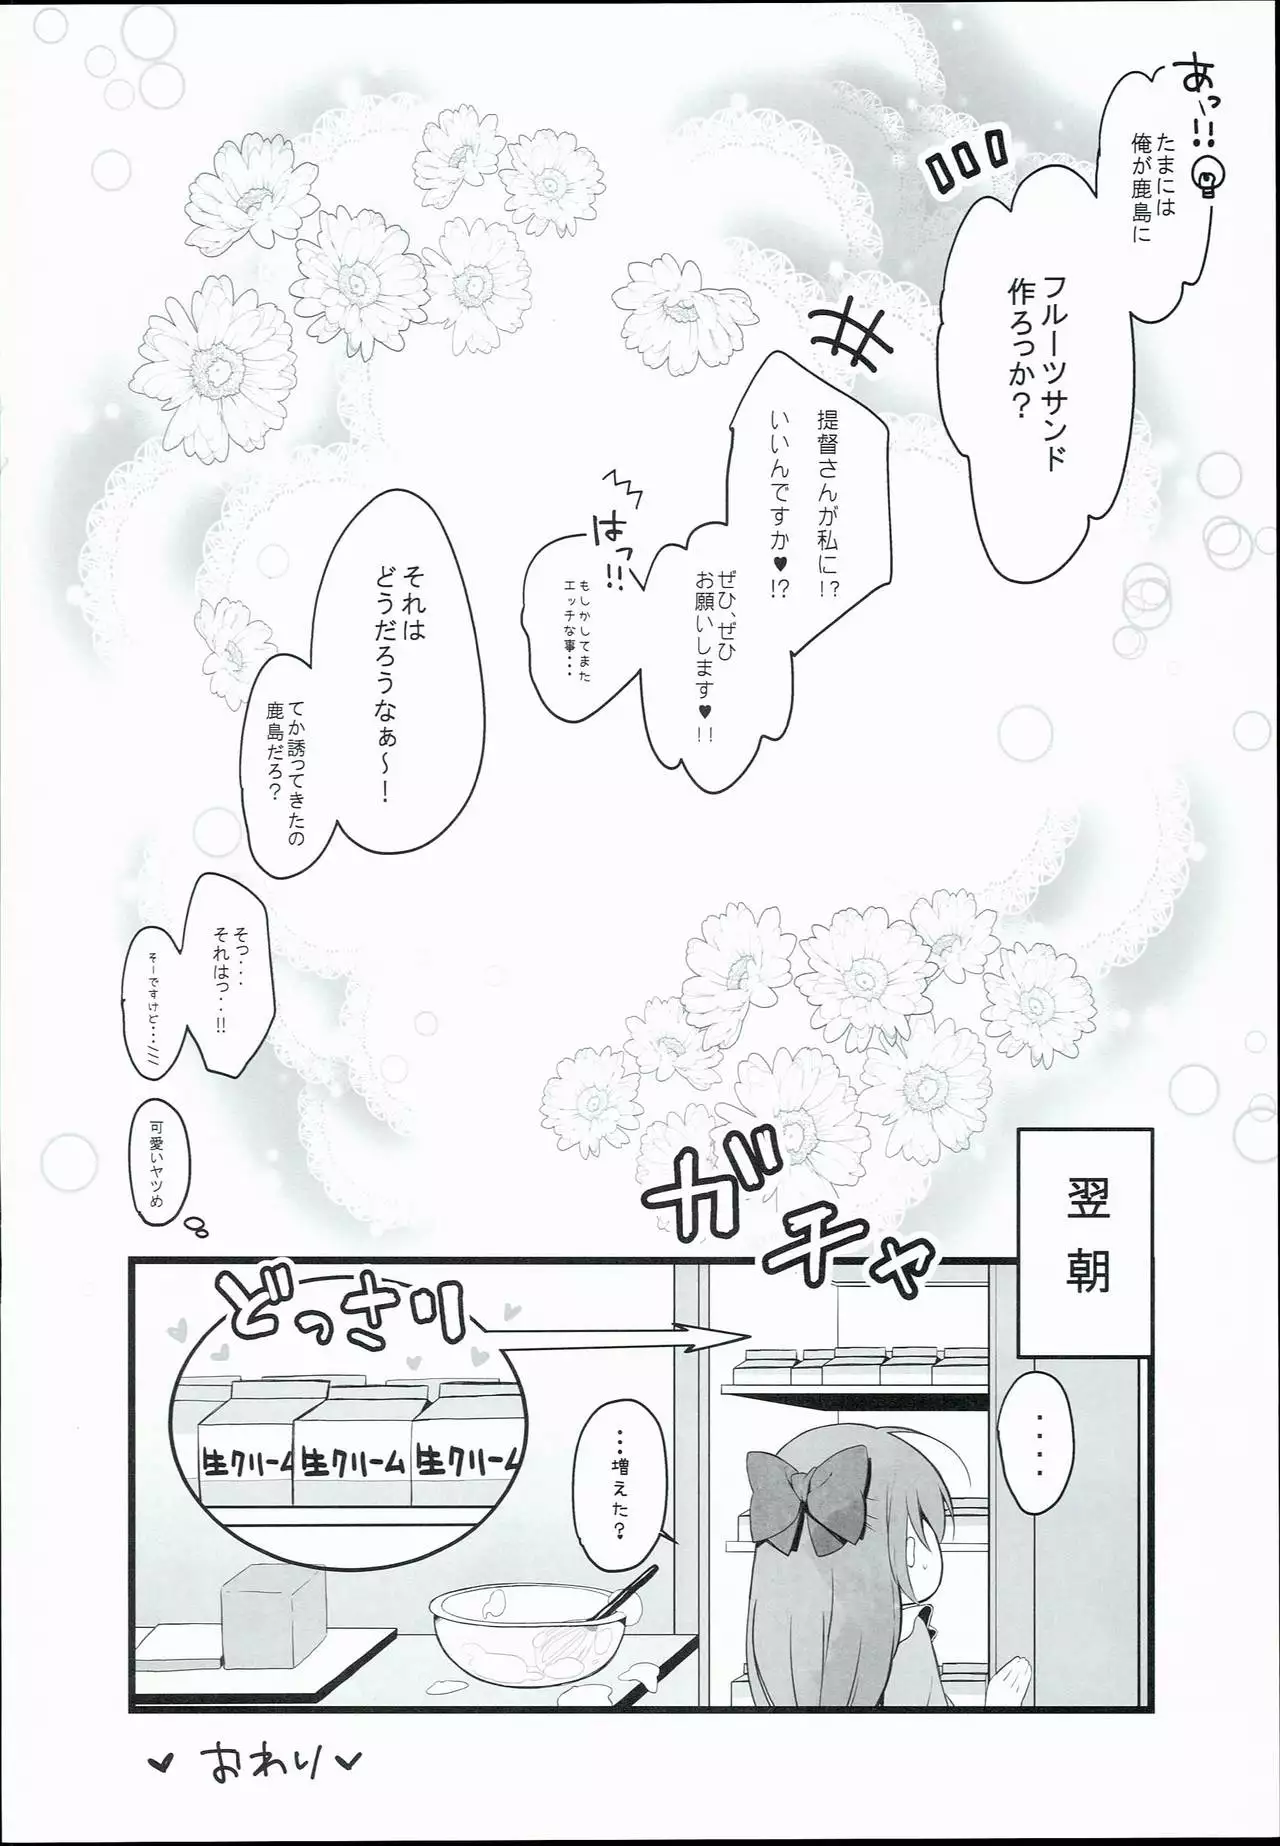 あっ!!
たまには
俺が鹿島に
フルーツサンド
作ろっか?
提督さんが私に!?
いいんですか♥!?
ぜひ、ぜひ
お願いします♥!!
はっ!!
もしかしてまた
エッチな事・・・
それは
どうだろうなぁ～!
てか誘ってきたの
鹿島だろ?
そっ・・・
それはっ・・!!
そーですけど・・・///
可愛いヤツめ
翌朝
ガチャ
・・・・
どっさり
生クリーム
生クリーム
生クリーム
・・・増えた?
♥おわり♥